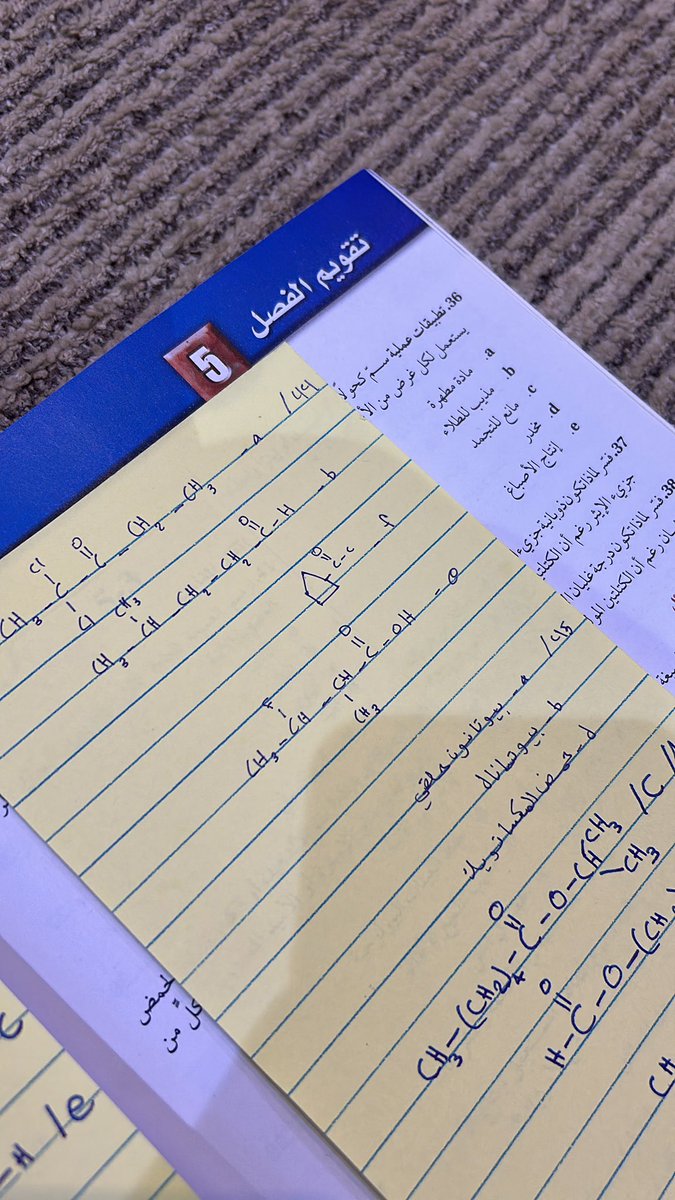 تقويم الفصل
5
36. تطبيقات عملية سم كحولاً
يستعمل لكل غرض من الأ
a. مادة مطهرة
b. مذيب للطلاء
c. مانع للتجمد
d. مخدر
e. إنتاج الأصباغ
37. فسّر لماذا تكون ذوبانية جزيء
جزيء الإيثر رغم أن الكتلتين
38. فسّر لماذا تكون درجة غليان ا
رغم أن الكتلتين المو
44/
Cl O
CH3-C-C-CH2-CH3 -a
Cl
CH3 O
CH3-CH-CH2-CH2-C-H -b
O
C-C -f
F O
CH3-CH-CH-C-OH -e
CH3
45/
a- بيوتانون حلقي
b- بيوتانال
d- حمض الهكسانويك
O CH3
CH3-(CH2)4-C-O-CH /C/
CH3
O
H-C-O-(CH
CH
لحمض
كلٌّ من
-H /e